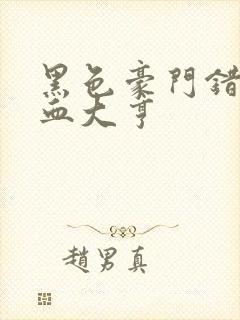 黑色豪門錯
血大亨
趙男真